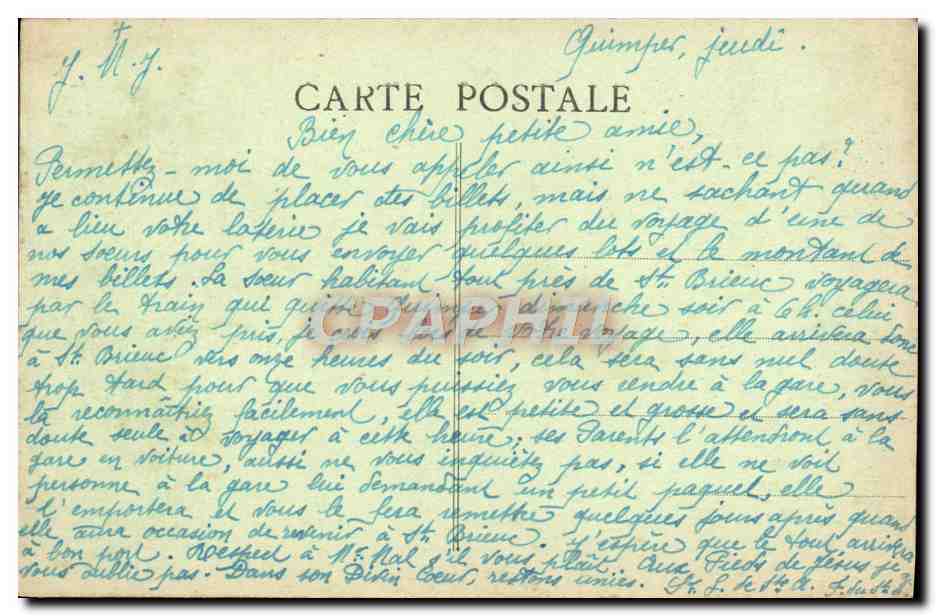 J. M. J.
Quimper, jeudi.
CARTE POSTALE
Bien chère petite amie,
Permettez-moi de vous appeler ainsi n'est-ce pas?
Je continue de placer des billets, mais ne sachant quand
a lieu votre loterie je vais profiter du voyage d'une de
nos soeurs pour vous envoyer quelques lots et le montant de
mes billets. La soeur habitant tout près de St Brieuc voyagera
par le train qui quitte Quimper dimanche soir à 6h. celui
que vous aviez pris, votre voyage, elle arrivera donc
à St. Brieuc vers onze heures du soir, cela sera sans nul doute
trop tard pour que vous puissiez vous rendre à la gare, vous
la reconnaîtriez facilement, elle est petite et grosse et sera sans
doute seule à voyager à cette heure; ses Parents l'attendront à la
gare en voiture, aussi ne vous inquiétez pas, si elle ne voit
personne à la gare lui demandant un petit paquet, elle
l'emportera et vous le fera remettre quelques jours après quand
elle aura occasion de revenir à St Brieuc. J'espère que le tout arrivera
à bon port. Respect à Me Mal s'il vous plaît. Aux Pieds de Jésus je
vous oublie pas. Dans son Divin Coeur, restons unies.
CPAPHIL